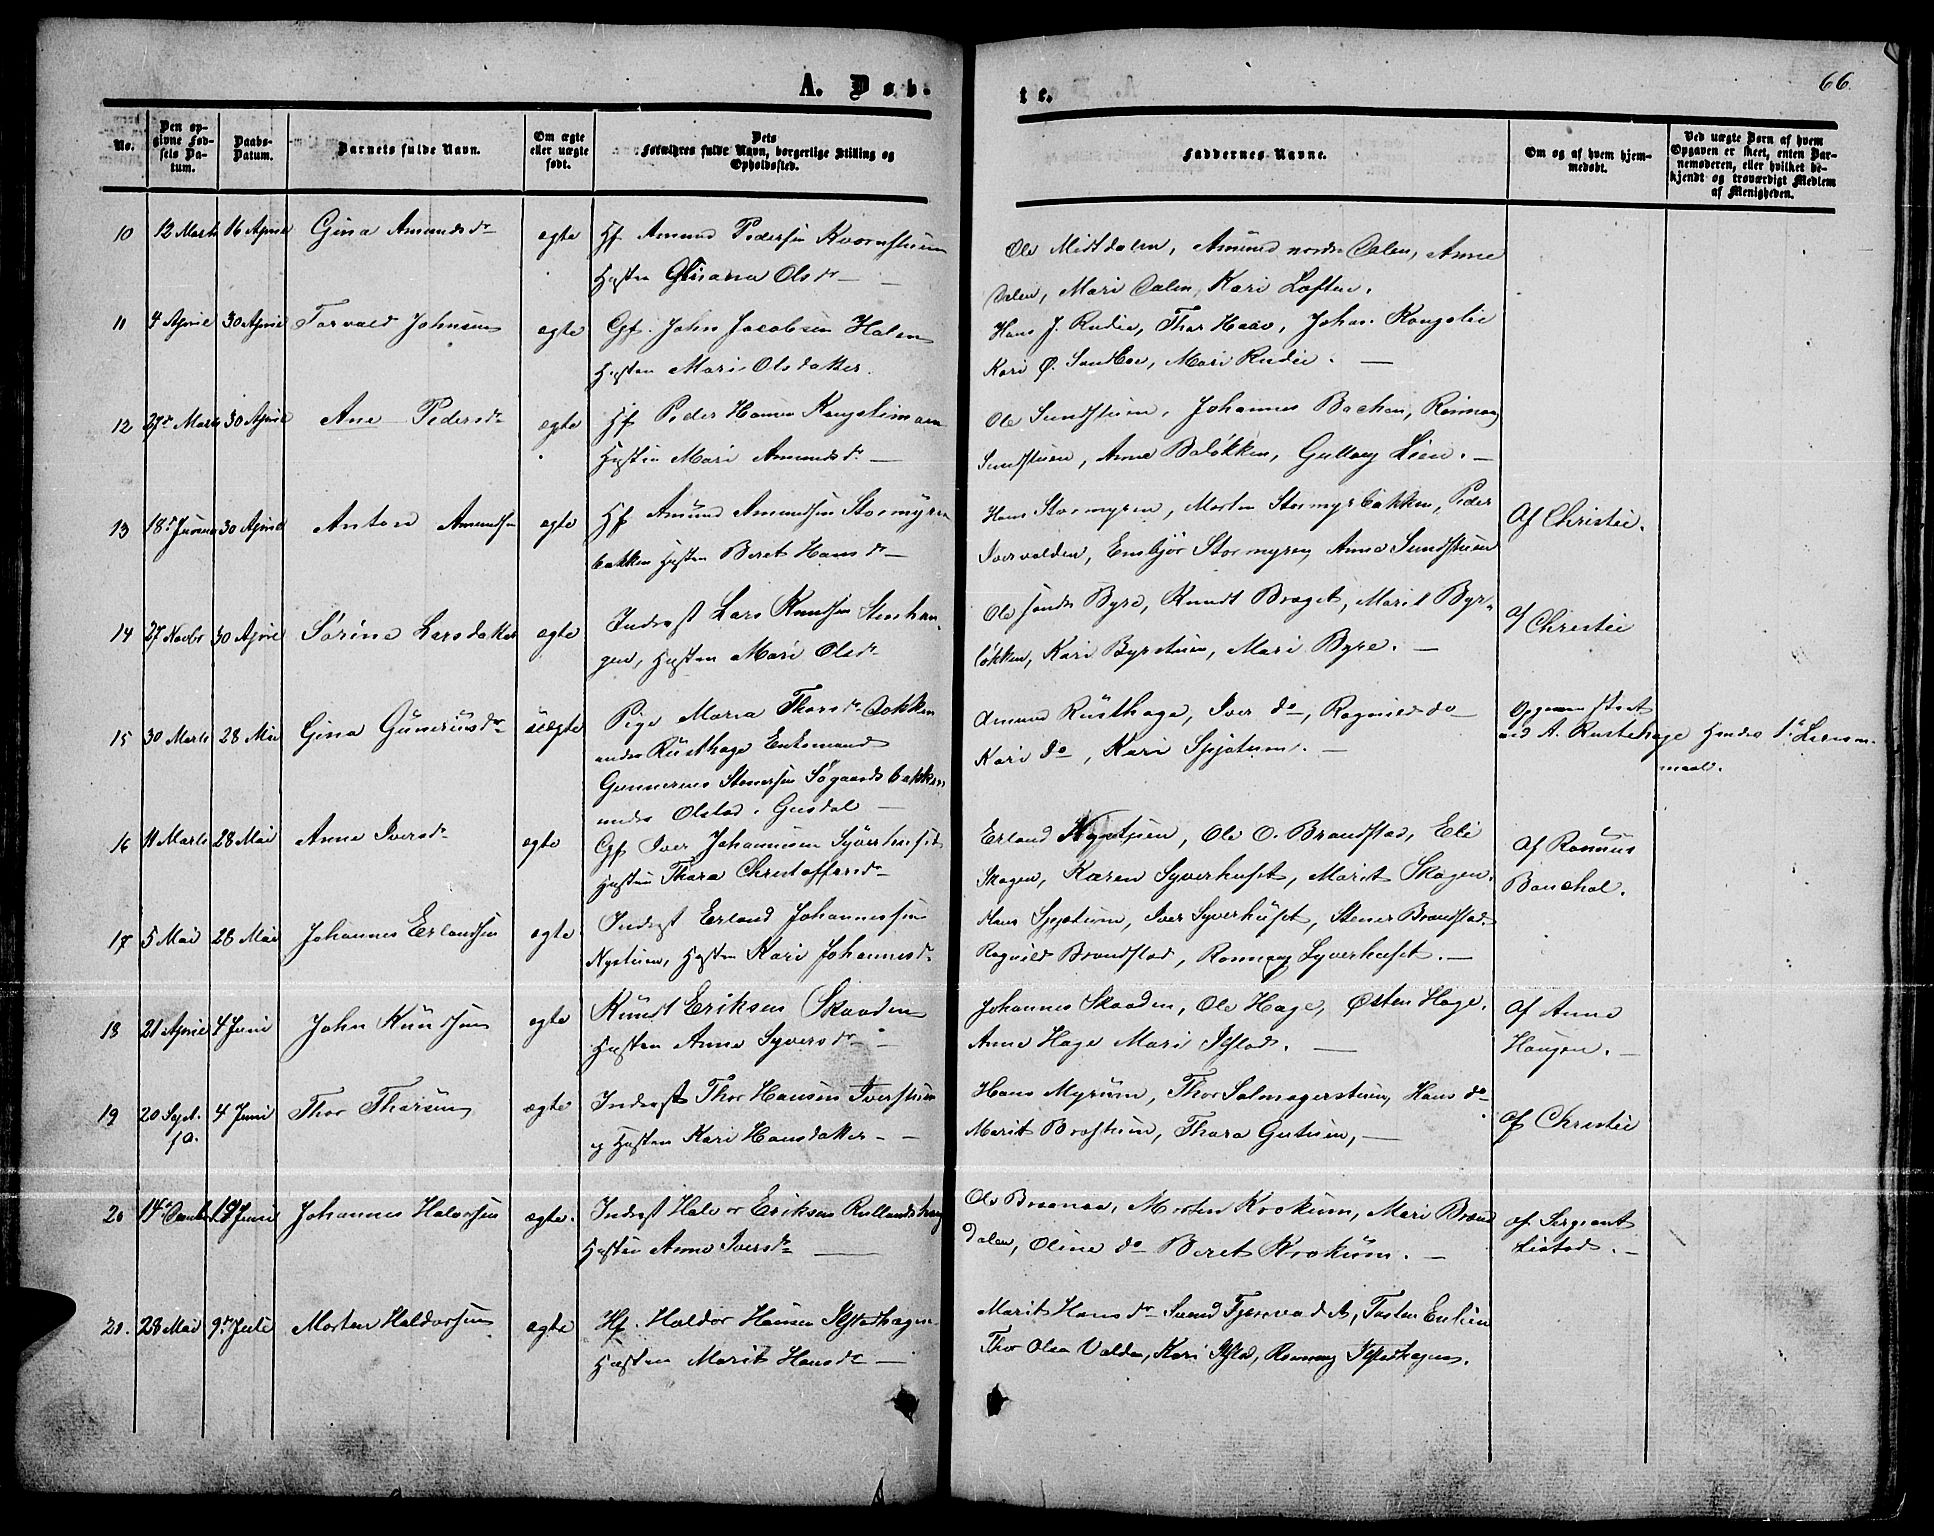 A. Døb-
te.
66.
No.
Den op-
givne Fød-
sels Da-
tum.
Daabs-
Datum.
Barnets fulde Navn.
Om ægte
eller uægte
født.
Dets
Forældres fulde Navn, borgerlige Stilling og
Opholdssted.
Faddernes Navne.
Om og af hvem hjem-
medøbt.
Ved uægte Børn af hvem
Opgaven er skeet, enten Bar-
nemoderen, eller hvilket be-
kjendt og troværdigt Medlem
af Menigheden.
10 12 Marts 16 April Gina Amundsdr ægte Hf Amund Pedersen Kvernstuen
Hustru Oliana Olsdr
Ole Midtdalen, Amund nordre Dalen, Anne
Dalen, Mari Dalen, Kari Loften.
11 4 April 30 April Torvald Johnsen ægte Gf. John Jacobsen Holen
Hustru Mari Olsdatter.
Hans J. Rudie, Thor Haav, Johan Kongslie
Kari Ø. Sandboe, Mari Rudie.
12 27de Marts 30 April Ane Pedersdr ægte Hf Peder Hansen
Hustru Mari Amundsdr
Ole Sundstuen, Johannes Bachen, Rönnoug
Sundstuen, Anne Baløkken, Gullaug Lien.
13 18de Januar 30 April Anton Amundsen ægte Hf Amund Amundsen Stormyren
bakken Hustru Beret Hansdr
Hans Stormyren, Morten Stormyrbakken, Peder
Iversvolden, Embjør Stormyren, Anne Sundstuen
Af Christie.
14 27 Novbr 30 April Sørine Larsdatter ægte Inderst Lars Knudsen Stenhau-
gen, Hustru Mari Olsdr
Ole søndre Byre, Knudt Braget, Marit Byr-
løkken, Kari Byrstuen, Mari Byre.
af Christie
15 30 Marts 28 Mai Gina Gunerusdr uægte Pige Maria Thorsdr Bakken
under Rusthage Enkemand
Gunnerus Stenersen Søgaardsbakken
under Olstad i Gusdal
Amund Rusthage, Iver do, Ragnild do
Kari do, Kari Spjotum.
Opgaven skeet
ved A. Rustehage Hendes 1ste Leiers-
maal.
16 11 Marts 28 Mai Anne Iversdr ægte Gf Iver Johannesen Syverhuset
Hustru Thora Christoffersdr
Erland Nystuen, Ole O. Brandstad, Eli
Skogen, Karen Syverhuset, Marit Skogen.
Af Rasmus
Bauchol.
17 5 Mai 28 Mai Johannes Erlandsen ægte Inderst Erland Johannessen
Nystuen, Hustru Kari Johannesdr
Hans Spjotum, Iver Syverhuset, Stener Brandstad
Ragnild Brandstad, Rønnoug Syverhuset.
18 21 April 4 Juni John Knudsen ægte Knudt Eriksen Skaaden
Hustru Anne Syversdr
Johannes Skaaden, Ole Hage, Østen Hage.
Anne Hage Mari Ilstad.
Af Anne
Haugen.
19 20 Sept. 4 Juni Thor Thorsen ægte Inderst Thor Hansen Iverstuen
og Hustru Kari Hansdatter
Hans Myrum, Thor Salmagerstuen, Hans do
Marit Brostuen, Thora Gutuen,
af Christie
20 Johannes Halvorsen ægte. Inderst Halvor Eriksen Rullandshaug
Hustru Anne Iversdr
Ole Braenaa, Morten Krokum, Mari Braen
dalen, Oline do Beret Krokum.
af Sergeant
Listad.
21. 28 Mai 9de Juli Morten Haldorsen ægte Hf. Haldor Hansen Ilstadhagen
Hustru Marit Hansdr
Marit Hansdr Svend Tosten Enlien
Thor Olsen Volden, Kari Ilstad, Rønnoug Ilstadhagen.